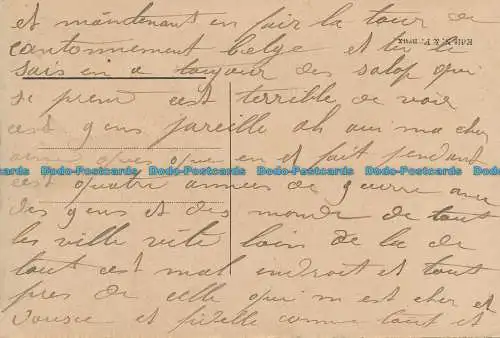 et maintenant en fair la tour de
cantonnement belge et tu le
sais en a toujour des salop qui
se prenr cest terrible de voir
cest gens pareille ah oui ma cher
en et fait pendant
cest quatre années de guerre avec
des gens et des monde de tout
les ville vite loin de la de
tout cest mal endroit et tout
pres de celle qui m est cher et
et fidelle comme tout et
Dodo-Postcards Dodo-Postcards Dodo-Postcards
Dodo-Postcards Dodo-Postcards Dodo-Postcards